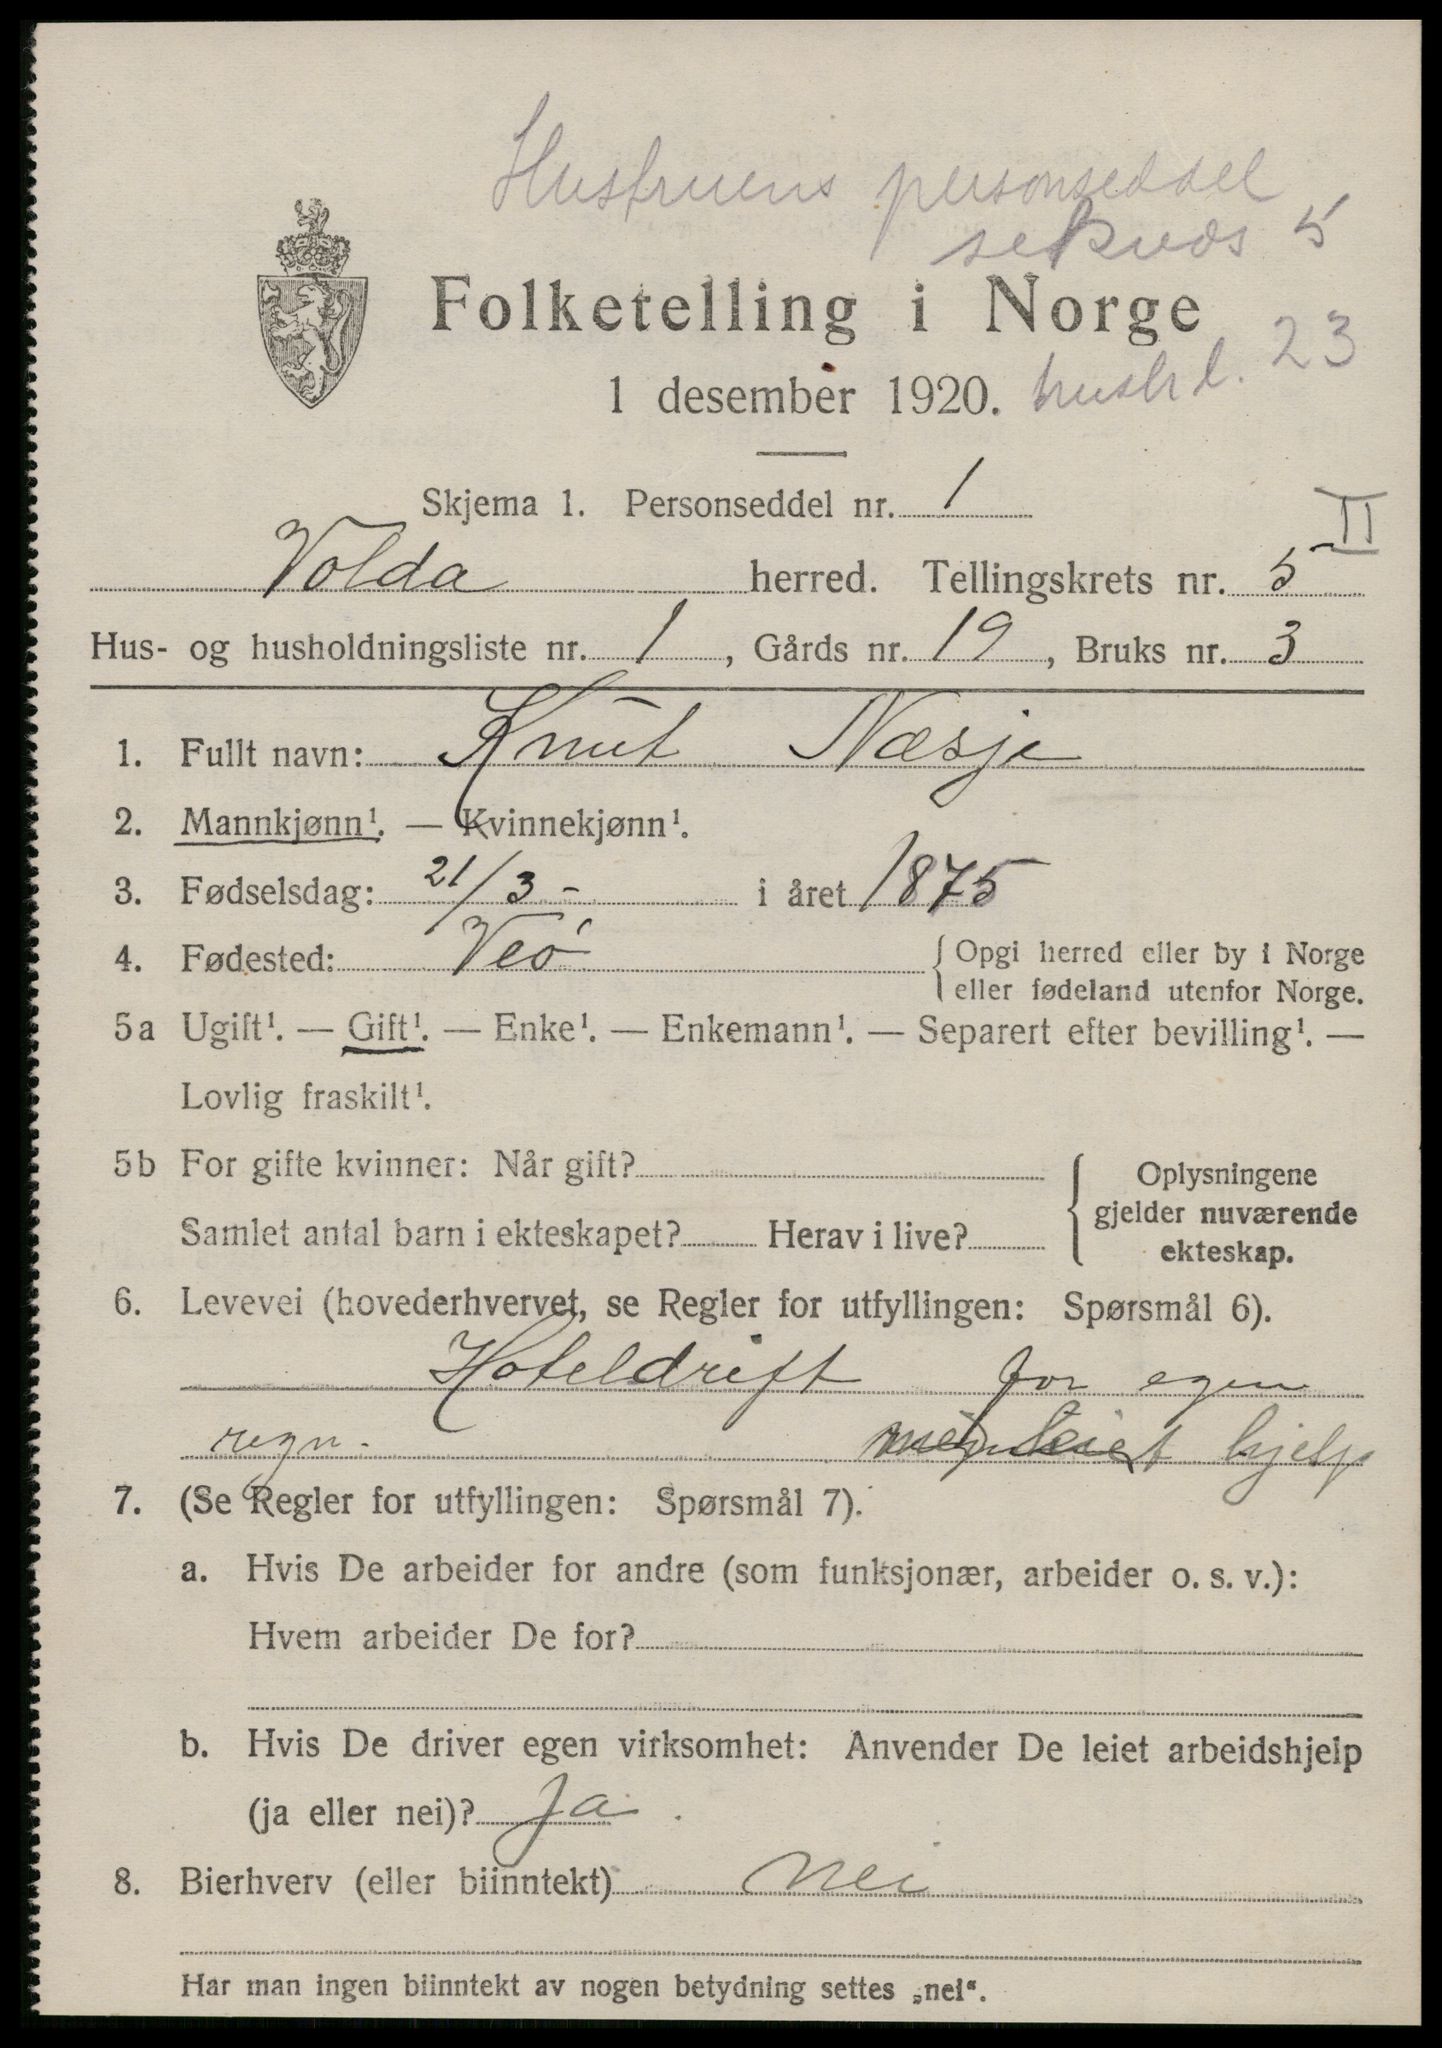 Hustruens personseddel
se kvds 5
Folketelling i Norge
hushl. 23
1 desember 1920.
Skjema 1. Personseddel nr. 1
II
Volda herred. Tellingskrets nr. 5
Hus- og husholdningsliste nr. 1, Gårds nr. 19, Bruks nr. 3
1. Fullt navn: Knut Næsje
2. Mannkjønn¹. — Kvinnekjønn¹.
3. Fødselsdag: 21/3- i året 1875
4. Fødested: Veø { Opgi herred eller by i Norge
eller fødeland utenfor Norge.
5a Ugift¹. — Gift¹. — Enke¹. — Enkemann¹. — Separert efter bevilling¹. —
Lovlig fraskilt¹.
5b For gifte kvinner: Når gift?
Samlet antal barn i ekteskapet? Herav i live?
{ Oplysningene
gjelder nuværende
ekteskap.
6. Levevei (hovederhvervet, se Regler for utfyllingen: Spørsmål 6).
Hoteldrift for egen
regn. leiet hjelp
7. (Se Regler for utfyllingen: Spørsmål 7).
a. Hvis De arbeider for andre (som funksjonær, arbeider o. s. v.):
Hvem arbeider De for?
b. Hvis De driver egen virksomhet: Anvender De leiet arbeidshjelp
(ja eller nei)? Ja.
8. Bierhverv (eller biinntekt) Nei
Har man ingen biinntekt av nogen betydning settes „nei“.